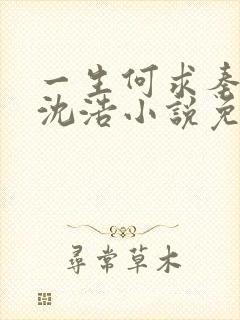 一生何求秦
沈浩小說免
尋常草木